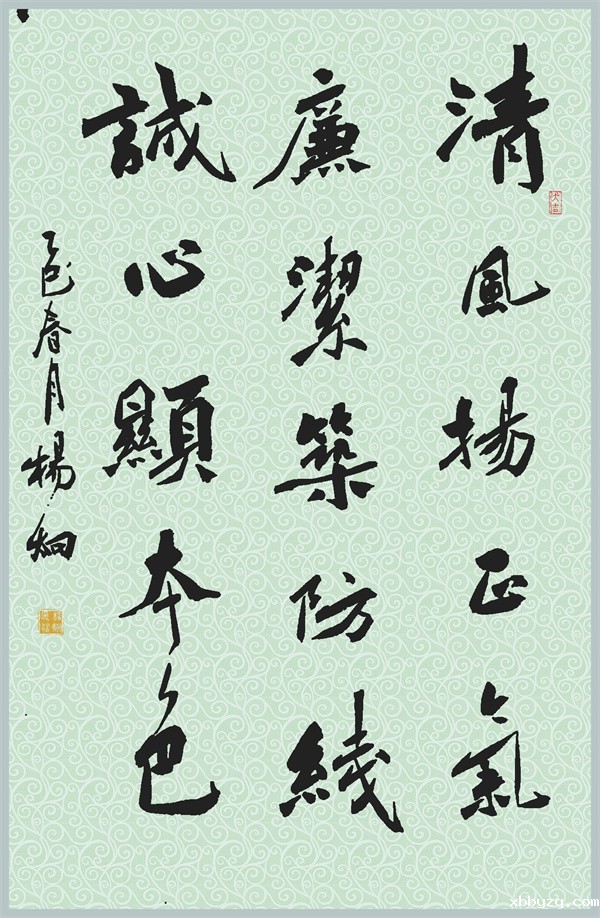 清風揚正氣
廉潔築防綫
誠心顯本色
乙巳春月楊炯
xbbyzg.com